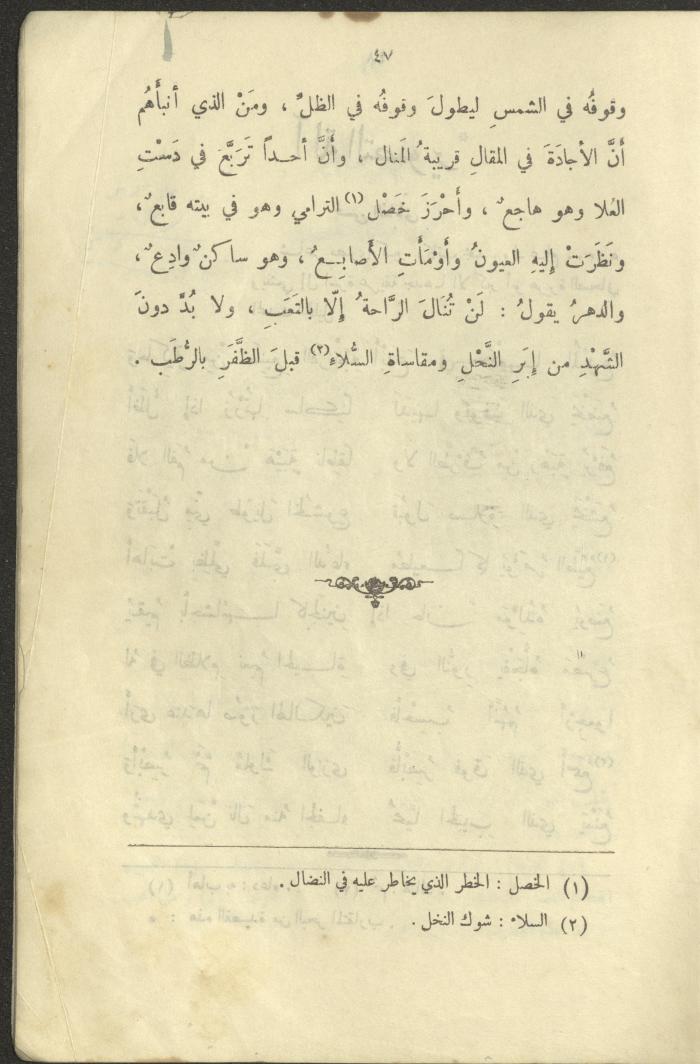 ٤٧
وقوفُه في الشمسِ ليطولَ وقوفُه في الظلِّ ، ومَنْ الذي أنبأَهُم
أَنَّ الأجادَةَ في المقالِ قريبةُ المَنال ، وأَنَّ أحداً تَرَبَّعَ في دَسْتِ
العُلا وهو هاجعٌ ، وأَحْرَزَ خَصْلَ (١) الترامي وهو في بيته قابعٌ ،
ونَظَرَتْ إِليهِ العيونُ وأَوْمَأَتِ الأَصابِعُ ، وهو ساكنٌ وادِعٌ ،
والدهرُ يقولُ : لَنْ تُنَالَ الرَّاحةُ إِلّا بالتَعَبِ ، ولا بُدَّ دونَ
الشَّهْدِ من إِبَرِ النَّحْلِ ومقاساةِ السُّلاءِ (٢) قبلَ الظَّفَرِ بالرُّطَب .
(١) الخصل : الخطر الذي يخاطر عليه في النضال .
(٢) السلاء : شوك النخل .